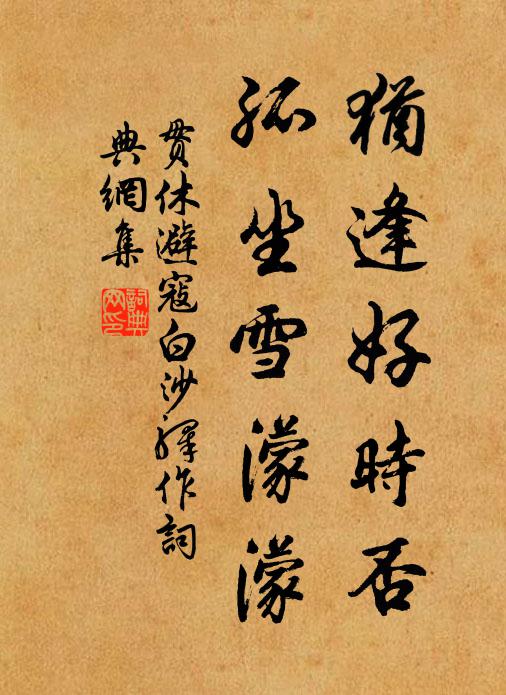 猶逢好時否
孤坐雪濛濛
貫休避寇白沙驛作詞
典網集
詞典網印